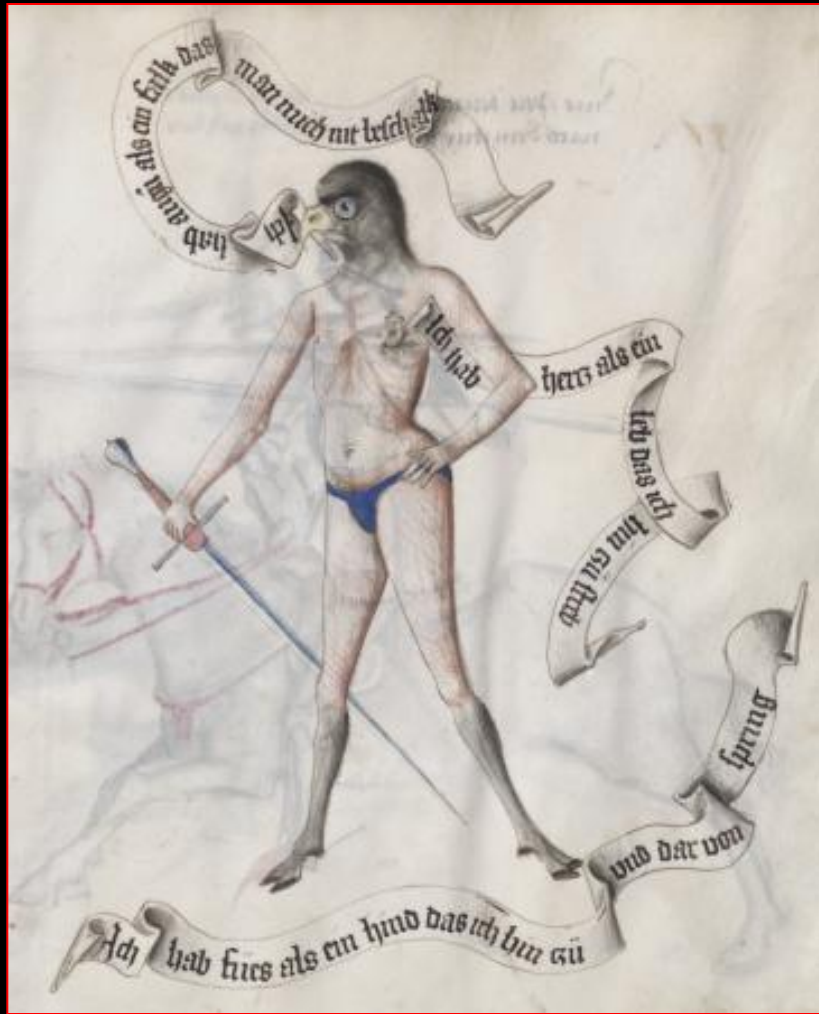 Ich hab augen als ein falk das man mich nit beschalk
Ich hab hertz als ein leb das ich hin zü streb
Ich hab fües als ein hind das ich hin zü und dar von spring